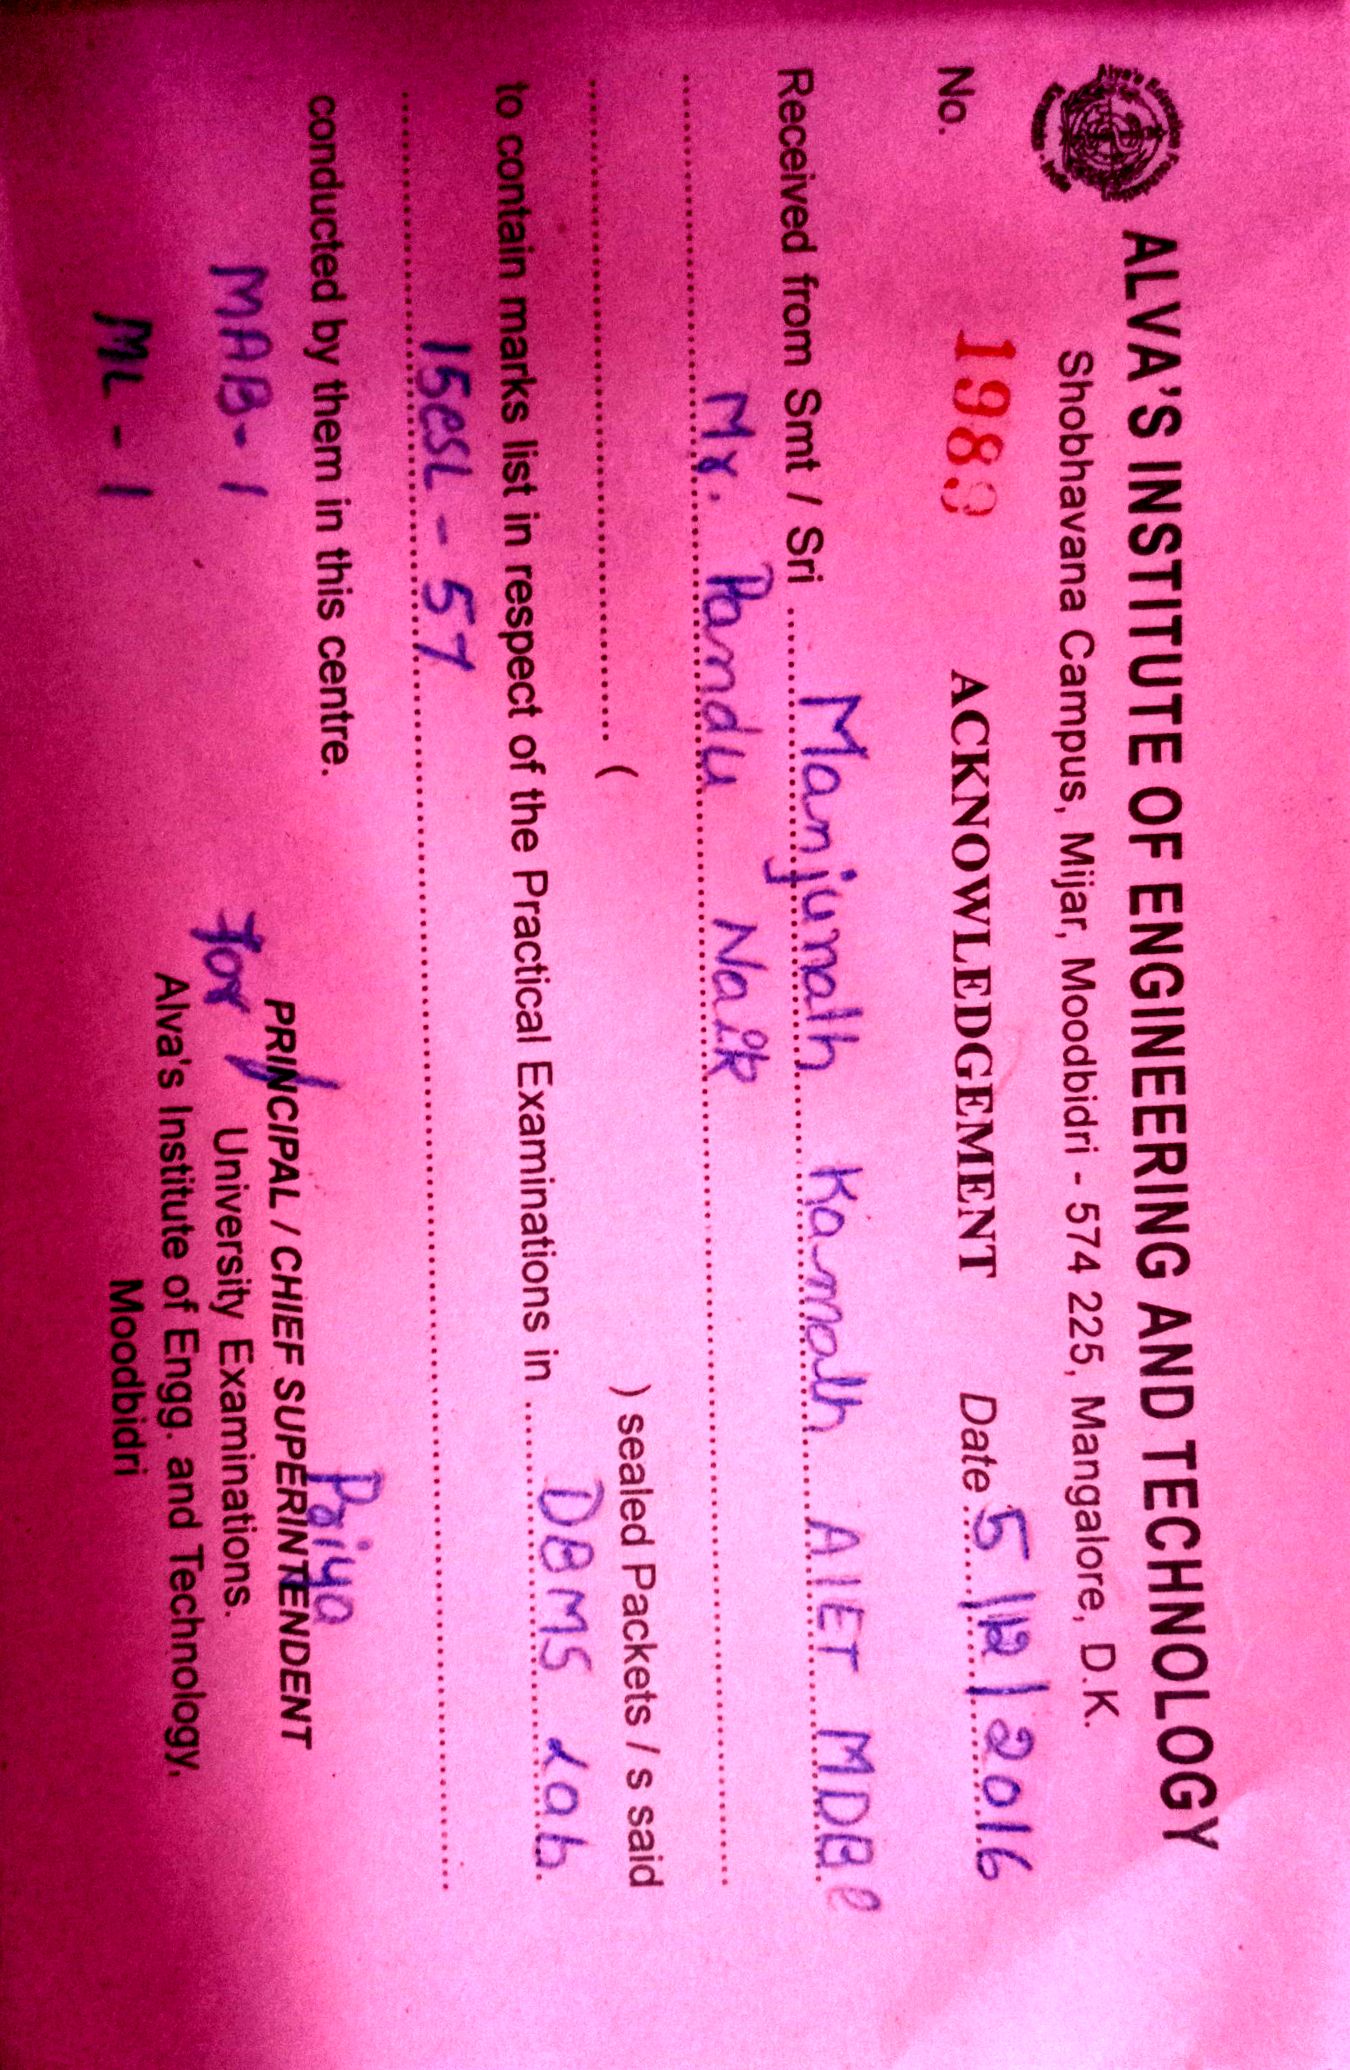 ALVA'S INSTITUTE OF ENGINEERING AND TECHNOLOGY
Shobhavana Campus, Mijar, Moodbidri - 574 225, Mangalore, D.K.
No. 1989 ACKNOWLEDGEMENT Date 5/12/2016
Received from Smt / Sri Manjunath Kamath AIET MDB
Mr. Pandu Naik
( ) sealed Packets / s said
to contain marks list in respect of the Practical Examinations in DBMS Lab
15CSL - 57
conducted by them in this centre.
MAB - 1
ML - 1
for
PRINCIPAL / CHIEF SUPERINTENDENT
University Examinations.
Alva's Institute of Engg. and Technology,
Moodbidri